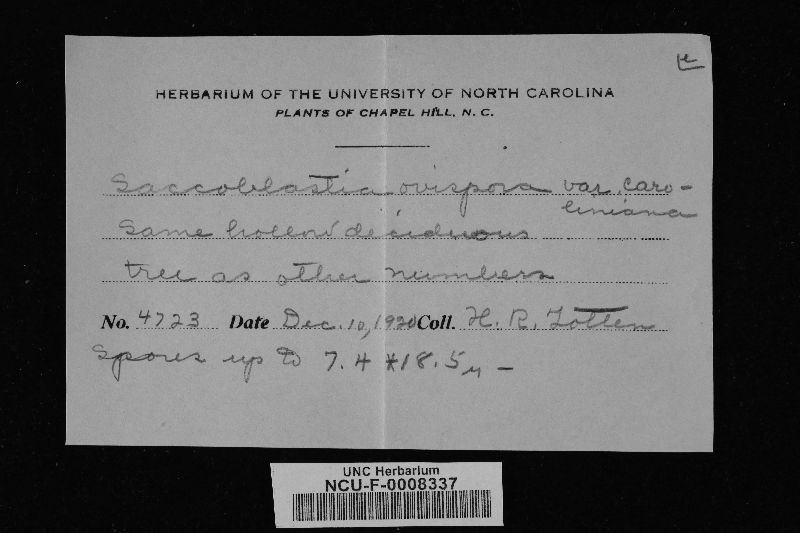 HERBARIUM OF THE UNIVERSITY OF NORTH CAROLINA
PLANTS OF CHAPEL HILL, N. C.
Saccoblastia ovispora var. caro-
liniana
Same hollow deciduous
tree as other numbers
No. 4723 Date Dec. 10, 1920 Coll. H. R. Totten
Spores up to 7.4 x 18.5 µ –
UNC Herbarium
NCU-F-0008337